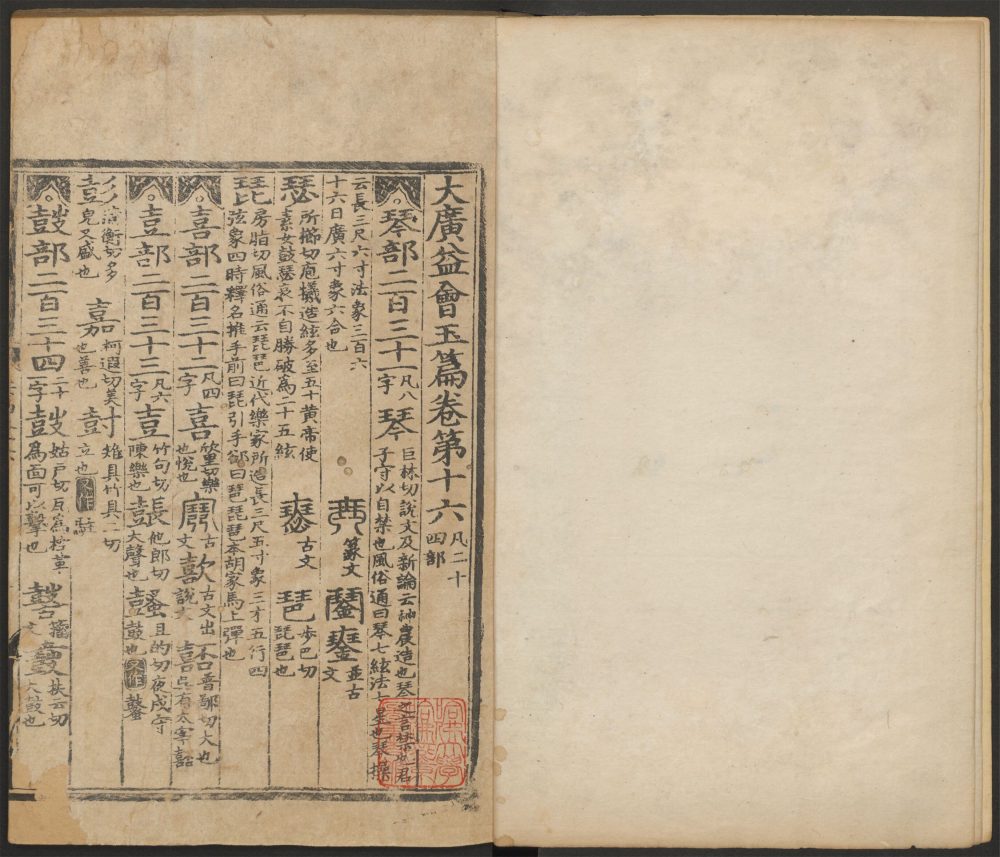 大廣益會玉篇卷第十六凡二十四部
琴部二百三十一凡八字琴巨林切說文及新論云神農造也琴之言禁也君子守以自禁也風俗通曰琴七絃法七星也琴操
云長三尺六寸法象三百六十六日廣六寸象六合也篆文並古文
瑟所櫛切庖犧造絃多至五十黄帝使素女鼓瑟哀不自勝破爲二十五絃古文琶步巴切琵琶也
琵房脂切風俗通云琵琶近代樂家所造長三尺五寸象三才五行四弦象四時釋名推手前曰琵引手郤曰琶琵琶本胡家馬上彈也
喜部二百三十二凡四字喜欣里切樂也悅也古文歖古文出說文嚭普鄙切大也吳有太宰嚭
壴部二百三十三凡六字壴竹句切陳樂也他郎切大聲也且的切夜戒守鼓也又作鼜
彭蒲衡切多皃又盛也嘉柯遐切美也善也尌雉具竹具二切立也又作駐
鼓部二百三十四二十字鼓姑戶切瓦爲椌革爲面可以擊也籀文鼖扶云切大鼓也